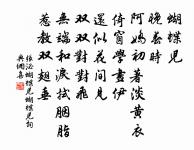 蝴蝶兒
晚春時
阿嬌初著淡黃衣
倚窗學畫伊
還似花間見
雙雙對對飛
無端和淚拭胭脂
惹教雙翅垂
張泌蝴蝶兒蝴蝶兒詞